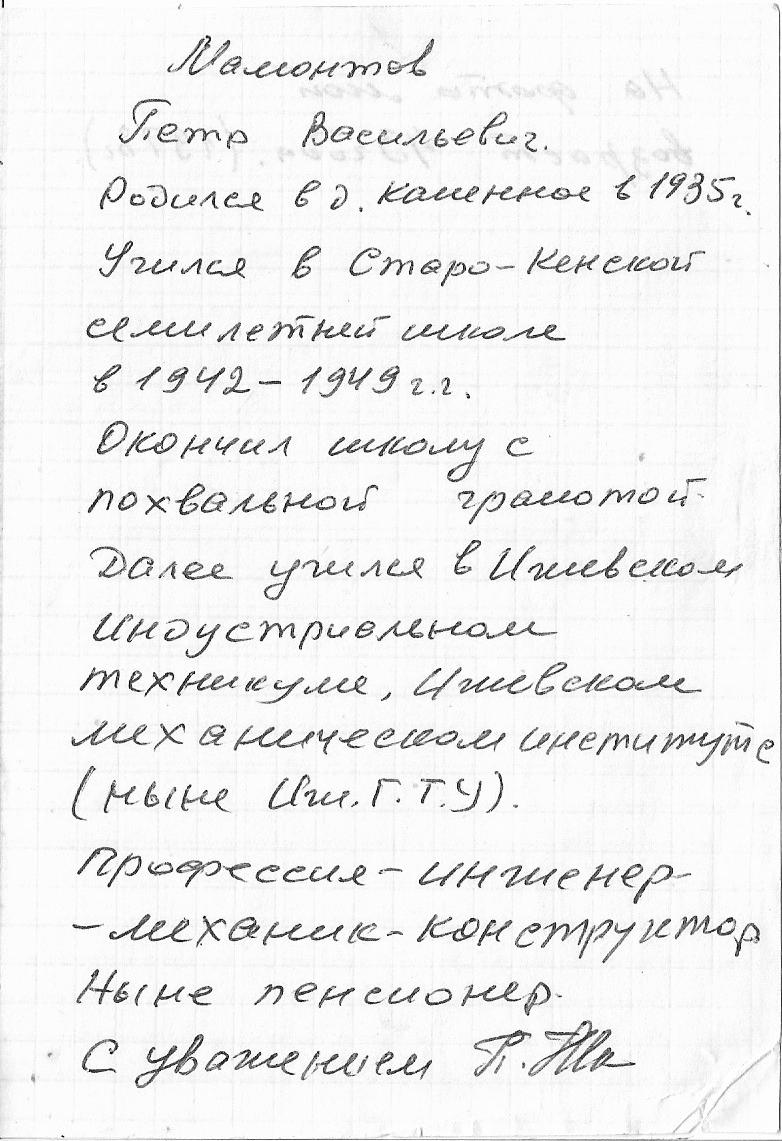 Мамонтов
Петр Васильевич.
Родился в д. Каменное в 1935г.
Учился в Старо-Кенской
семилетней школе
в 1942-1949 г.г.
Окончил школу с
похвальной грамотой.
Далее учился в Ижевском
Индустриальном
техникуме, Ижевском
механическом институте
(ныне Иж.Г.Т.У).
Профессия - инженер-
-механик-конструктор
Ныне пенсионер.
С уважением П.